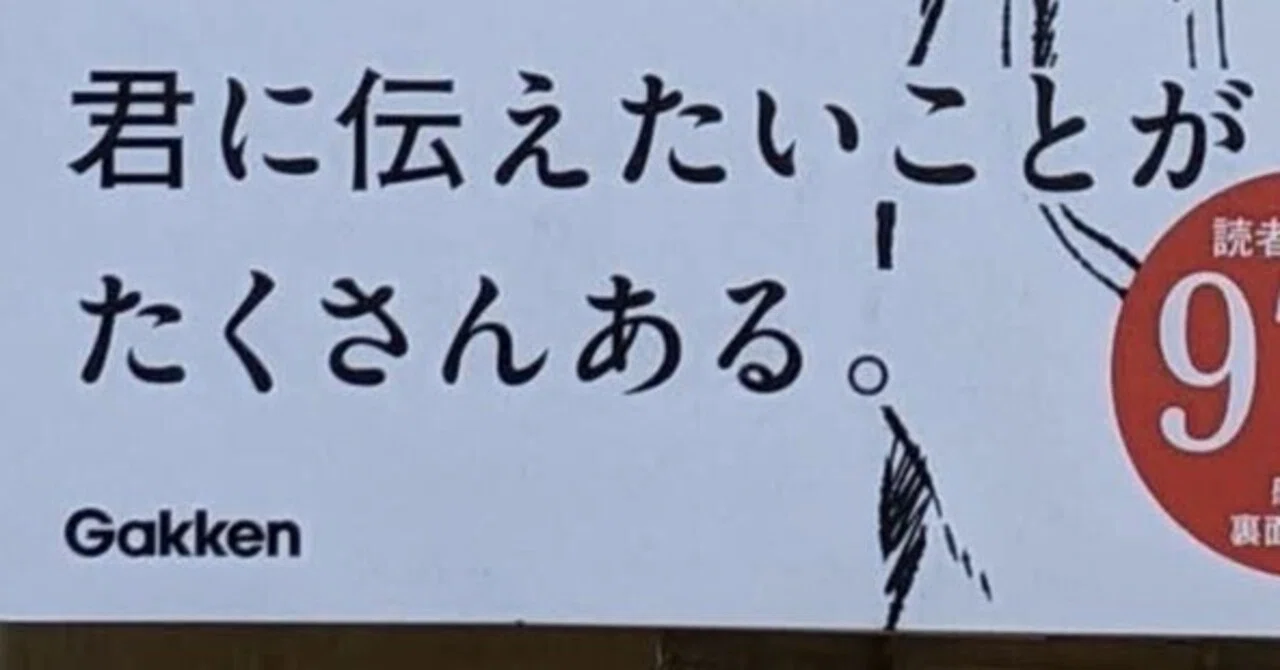 君に伝えたいことが
たくさんある。
Gakken
読者
9
裏面